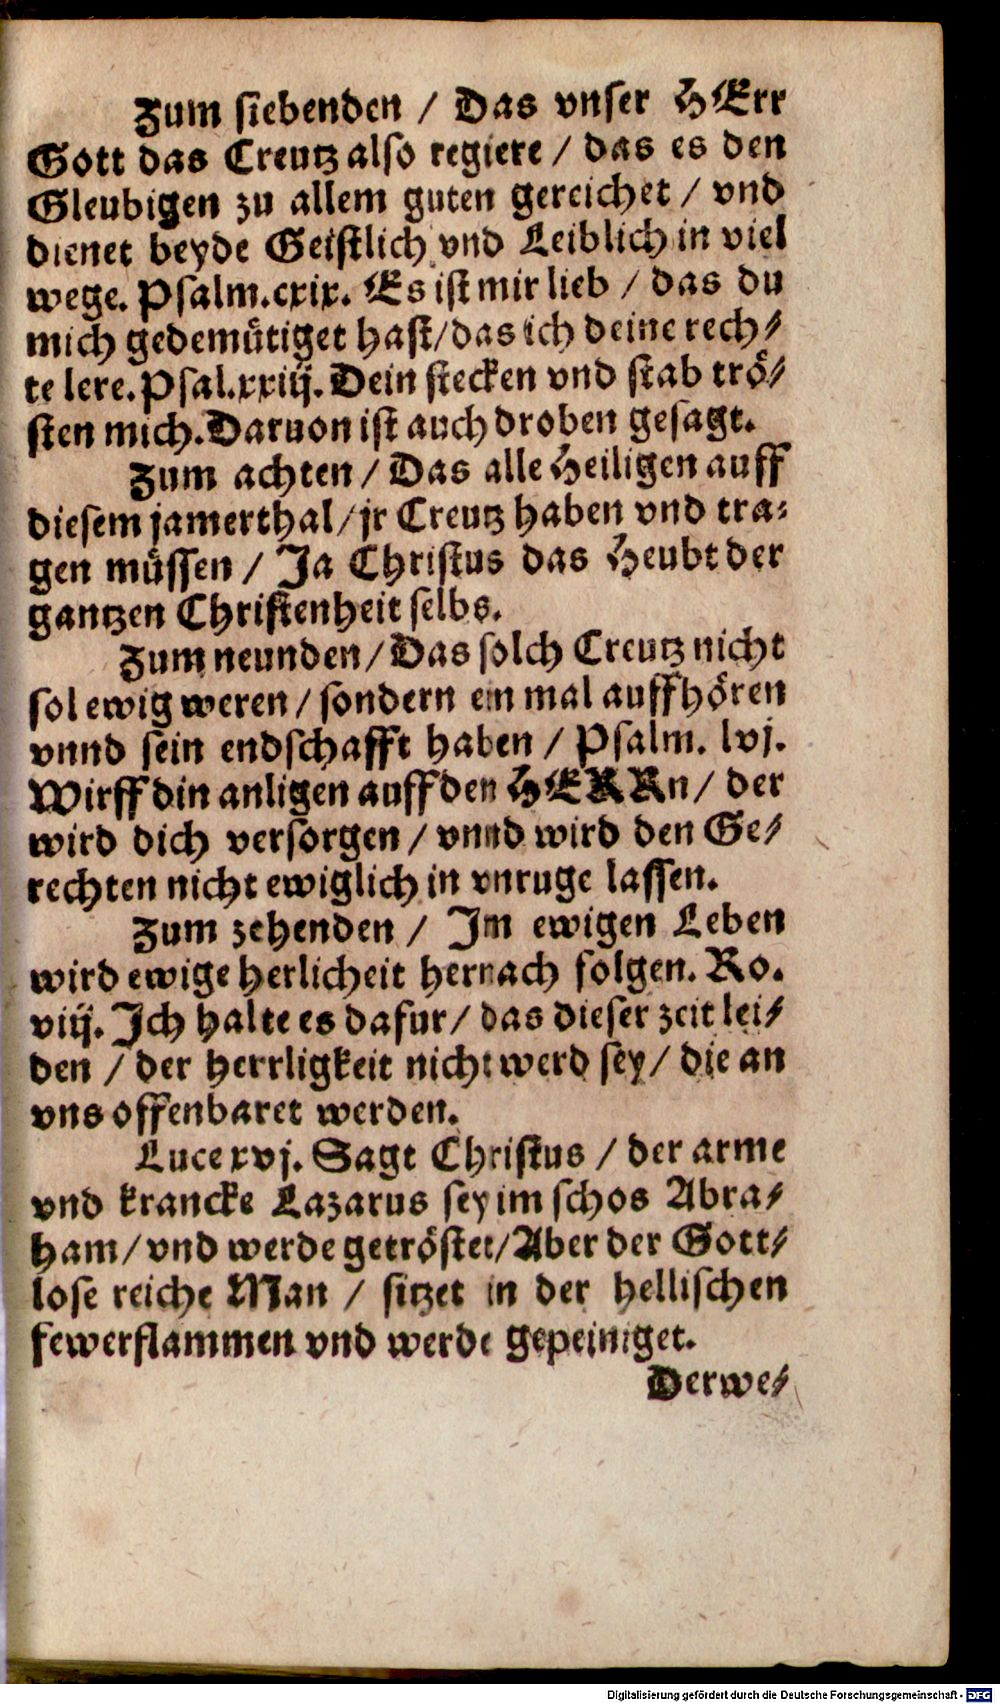 Zum siebenden / Das vnser HErr
Gott das Creutz also regiere / das es den
Gleubigen zu allem guten gereichet / vnd
dienet beyde Geistlich vnd Leiblich in viel
wege. Psalm. cxix. Es ist mir lieb / das du
mich gedemütiget hast/das ich deine rech⸗
te lere. Psal. xxiij. Dein stecken vnd stab trö⸗
sten mich. Daruon ist auch droben gesagt.
Zum achten / Das alle Heiligen auff
diesem jamerthal/jr Creutz haben vnd tra⸗
gen müssen / Ja Christus das Heubt der
gantzen Christenheit selbs.
Zum neunden/Das solch Creutz nicht
sol ewig weren / sondern ein mal auffhören
vnnd sein endschafft haben / Psalm. lvj.
Wirff din anligen auff den HERRn / der
wird dich versorgen / vnnd wird den Ge⸗
rechten nicht ewiglich in vnruge lassen.
Zum zehenden / Im ewigen Leben
wird ewige herlicheit hernach folgen. Ro.
viij. Ich halte es dafur/ das dieser zeit lei⸗
den / der herrligkeit nicht werd sey/ die an
vns offenbaret werden.
Luce xvj. Sagt Christus / der arme
vnd krancke Lazarus sey im schos Abra⸗
ham/ vnd werde getröstet/Aber der Gott⸗
lose reiche Man / sitzet in der hellischen
fewerflammen vnd werde gepeiniget.
Derwe⸗
Digitalisierung gefördert durch die Deutsche Forschungsgemeinschaft - DFG